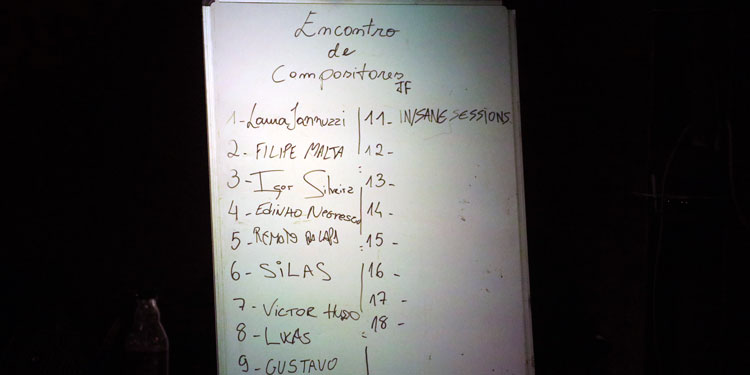 Encontro
de
Compositores
JF
1- Laura Jannuzzi
2- FILIPE MALTA
3- Igor Silveira
4- EDINHO NEGRESCO
5- RENATO DA LAPA
6- SILAS
7- VICTOR HUGO
8- LUKAS
9- GUSTAVO
11- IN/SANE SESSIONS
12-
13-
14-
15-
16-
17-
18-